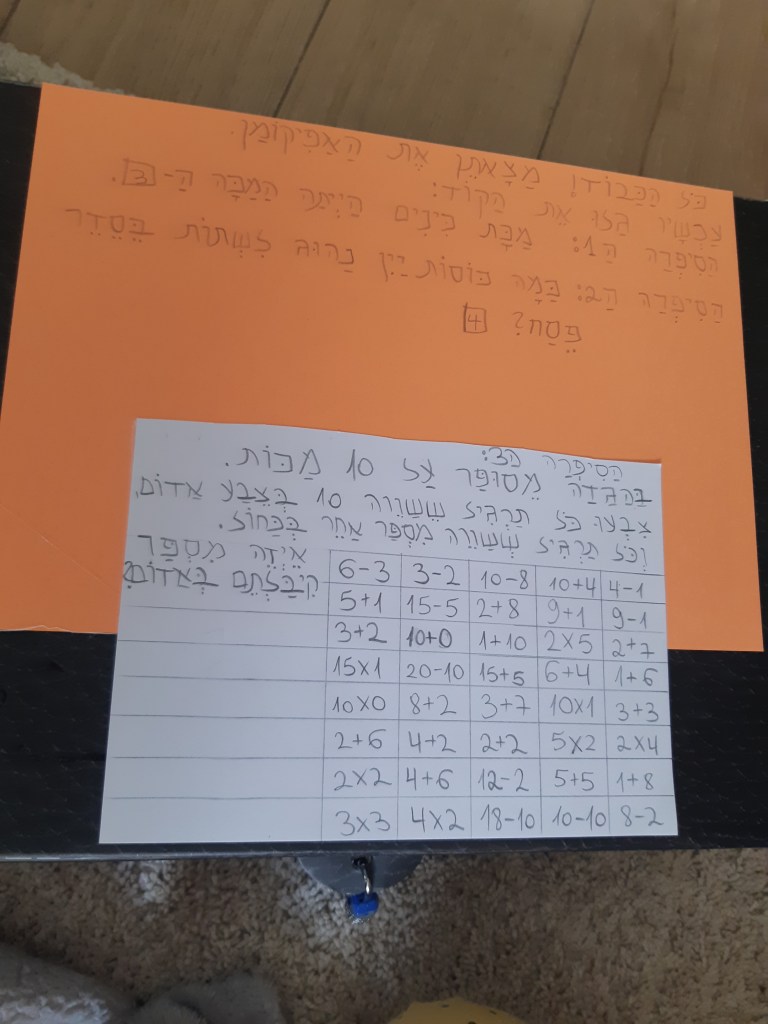 כֹּל הַכָּבוֹד! מְצָאתֶן אֶת הַאֲפִיקוֹמָן.
עַכְשָׁיו גַּלוּ אֶת הַקוֹד:
הַסִיפְרָה הַ1: מַכַּת כִּינִים הָיְתָה הַמַכָּה הַ-3.
הַסִיפְרָה הַ2: כַּמָה כּוֹסוֹת יַיִן נָהוּג לִשְׁתוֹת בְּסֵדֶר
פֶּסַח? 4
הַסִיפְרָה ה3:
בַּהַגָדָה מְסוּפָּר עַל 10 מַכּוֹת.
צִבְעוּ כֹּל תַרְגִיל שֶׁשָׁוֶוה 10 בְּצֶבַע אָדוֹם,
וְכֹל תַרְגִיל שֶׁשָׁוֶוה מִסְפָּר אַחֵר בְּכָחוֹל.
אֵיזֶה מִסְפָּר
קִיבַּלְתֶם בְּאָדוֹם?
6-3 3-2 10-8 10+4 4-1
5+1 15-5 2+8 9+1 9-1
3+2 10+0 1+10 2×5 2+7
15×1 20-10 15+5 6+4 1+6
10×0 8+2 3+7 10×1 3+3
2+6 4+2 2+2 5×2 2×4
2×2 4+6 12-2 5+5 1+8
3×3 4×2 18-10 10-10 8-2